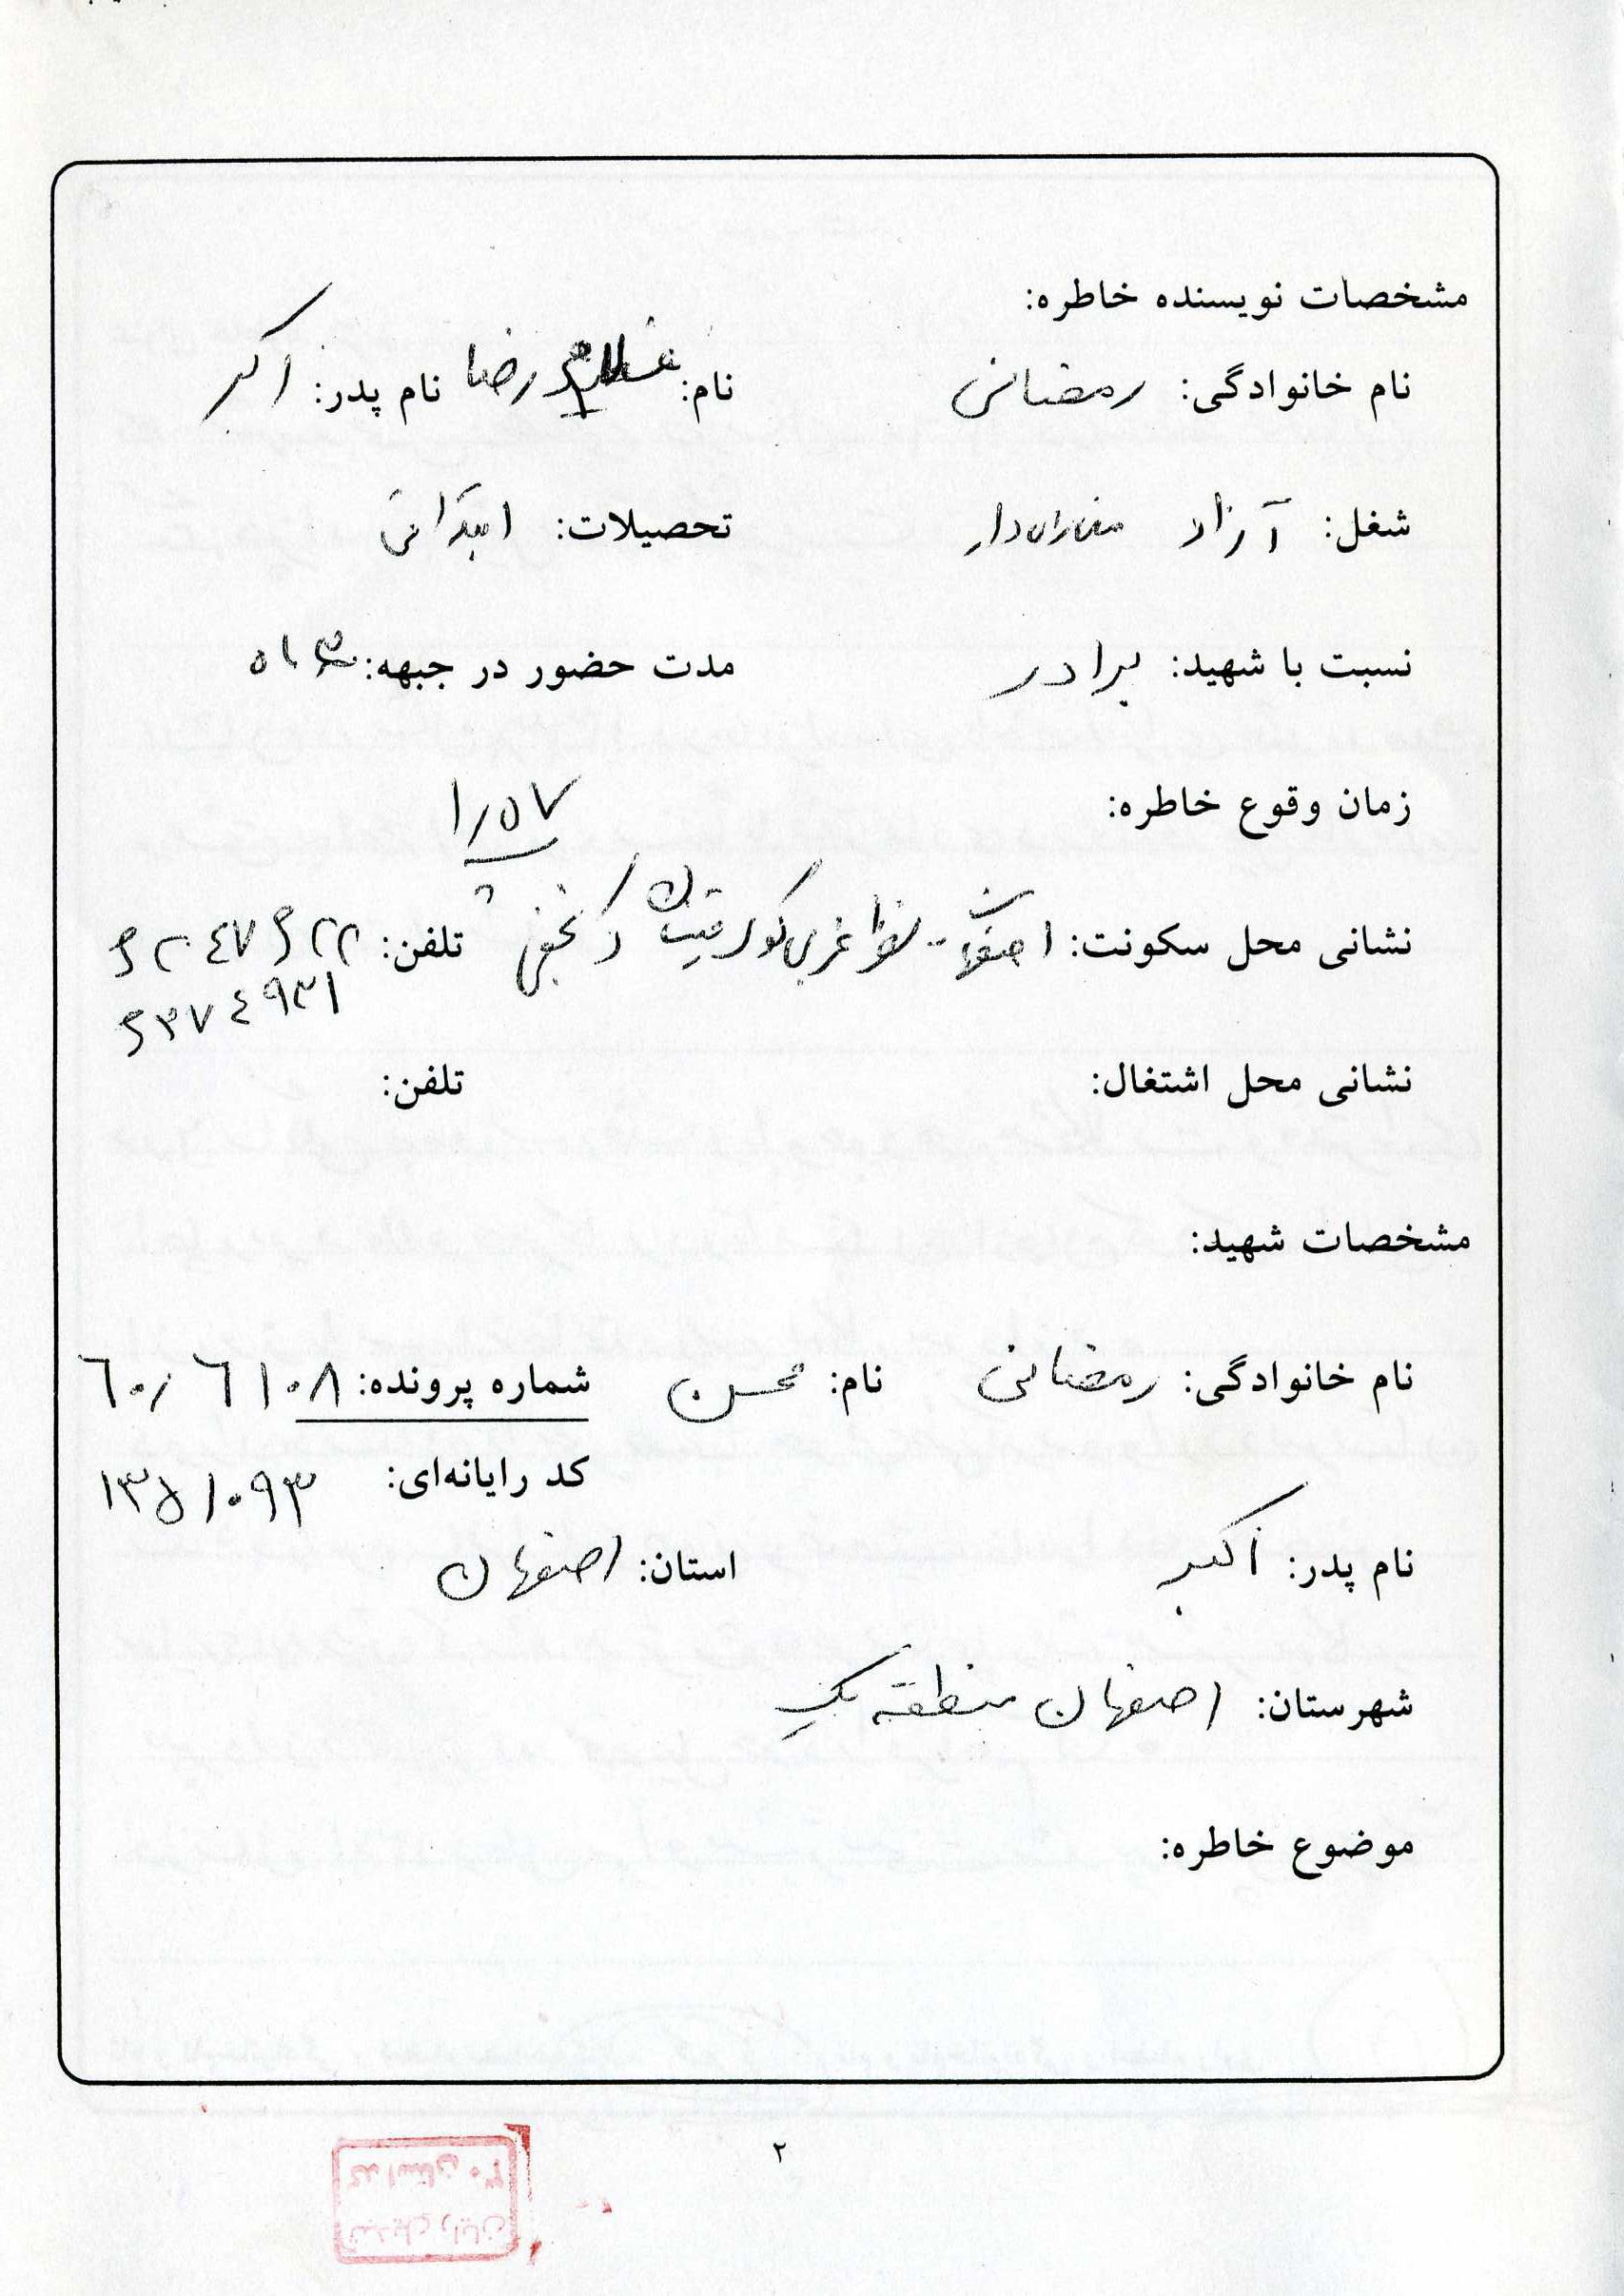 مشخصات نویسنده خاطره:
نام خانوادگی: رمضانی نام: غلامرضا نام پدر: اکبر
شغل: آزاد مغازه‌دار تحصیلات: ابتدائی
نسبت با شهید: برادر مدت حضور در جبهه: ۳ ماه
زمان وقوع خاطره: ۱٫۵۷
نشانی محل سکونت: اصفهان - نظر غربی کوی تلفن: ۶۲۰۴۷۶۲۲
۶۳۷۴۹۳۱
نشانی محل اشتغال: تلفن:
مشخصات شهید:
نام خانوادگی: رمضانی نام: محسن شماره پرونده: ۶۰٫۶۱۰۸
کد رایانه‌ای: ۱۳۵۱۰۹۳
نام پدر: اکبر استان: اصفهان
شهرستان: اصفهان منطقه یک
موضوع خاطره:
۲
کد استان ۳۰